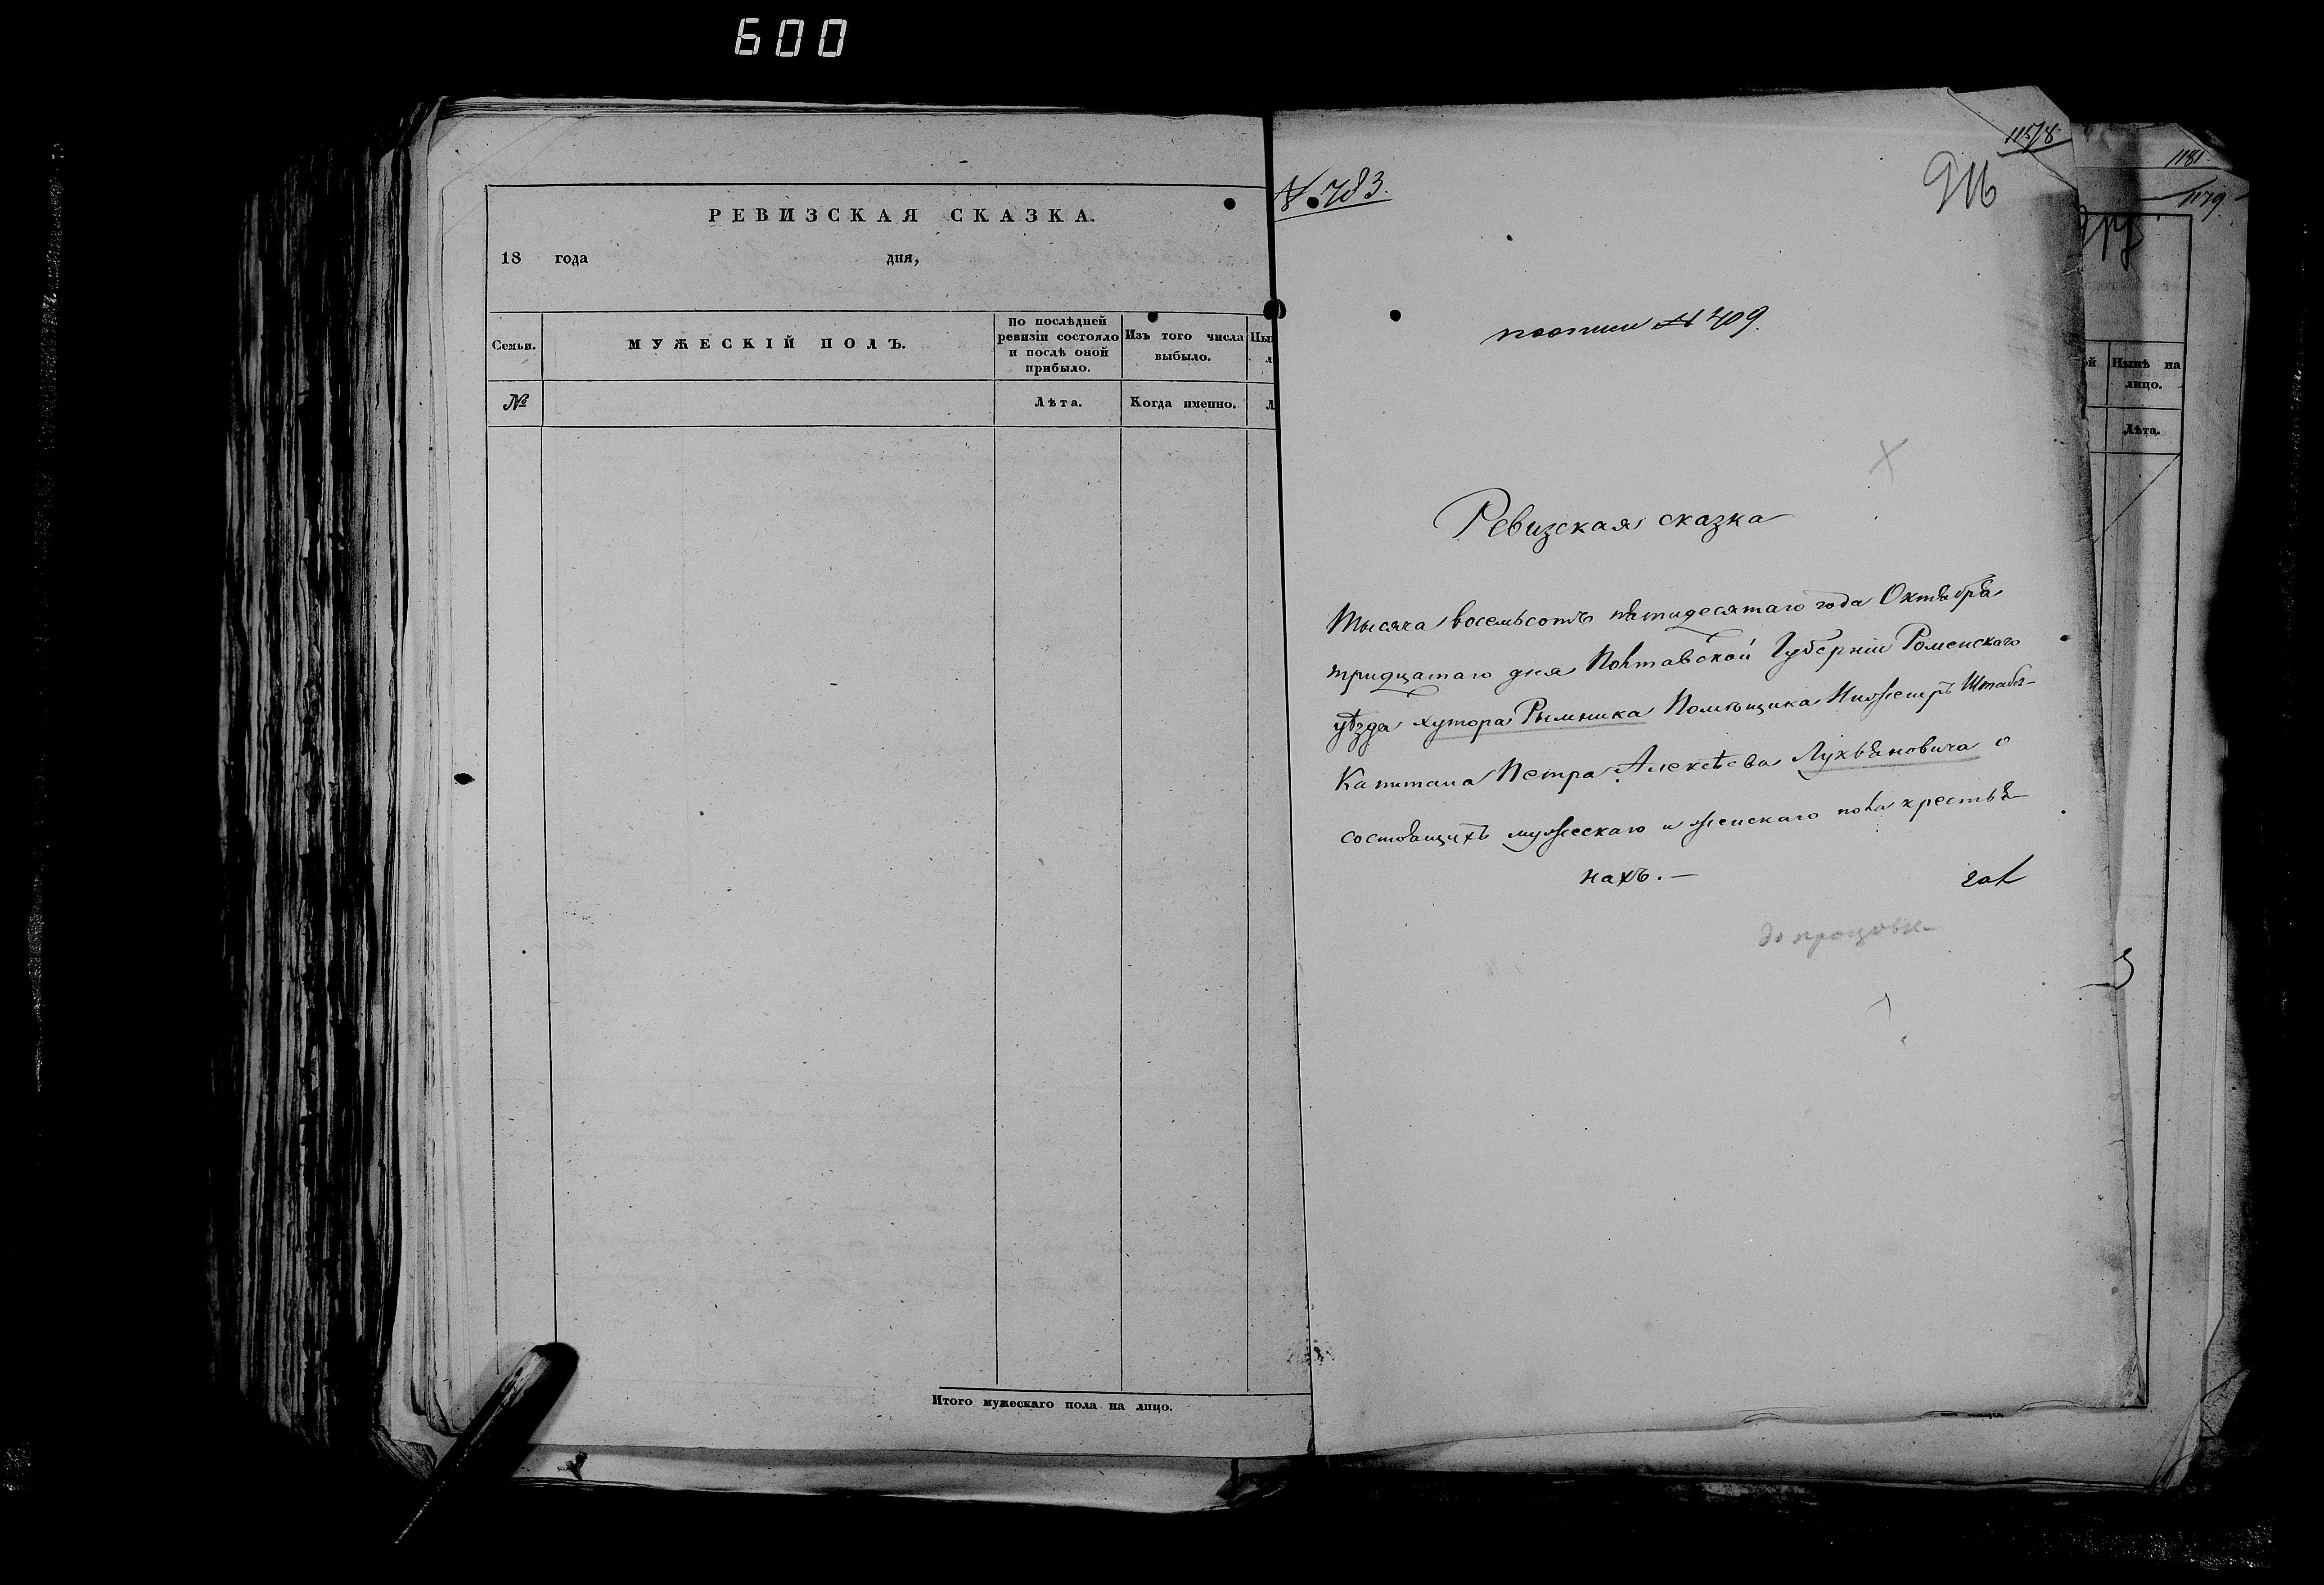 600
РЕВИЗСКАЯ СКАЗКА.
18 года дня,
Семьи.
МУЖЕСКІЙ ПОЛЪ.
По послѣдней
ревизіи состояло
и послѣ оной
прибыло.
Изъ того числа
выбыло.
№
Лѣта.
Когда именно.
Итого мужескаго пола на лицо.
№ 783.
1178
916
№ 409.
Ревизская сказка
Тысяча восемьсотъ пятидесятаго года Октября
тридцатаго дня Полтавской Губерніи Роменскаго
уѣзда хутора Рымника Помѣщика Инженеръ Штабъ-
Капитана Петра Алексѣева Лукьяновича о
состоящихъ мужескаго и женскаго пола крестья-
нахъ. —
1181
1179.
Нынѣ на
лицо.
Лѣта.